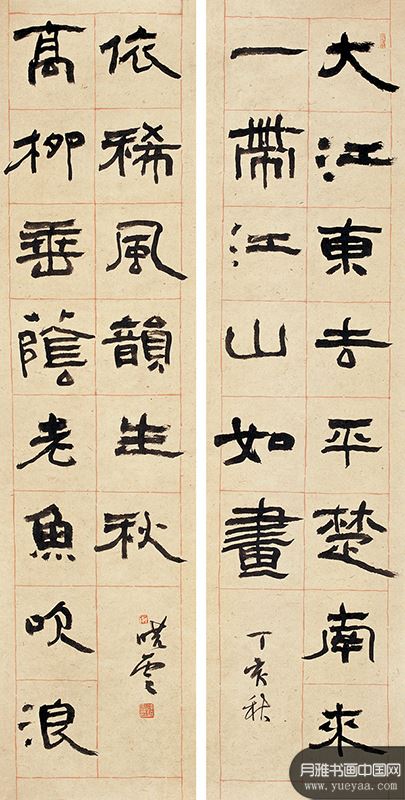 大江東去平楚南來
一帶江山如畫
丁亥秋
高柳垂蔭老魚吹浪
依稀風韻生秋
晓雲
月雅书画中国网
www.yueyaa.com